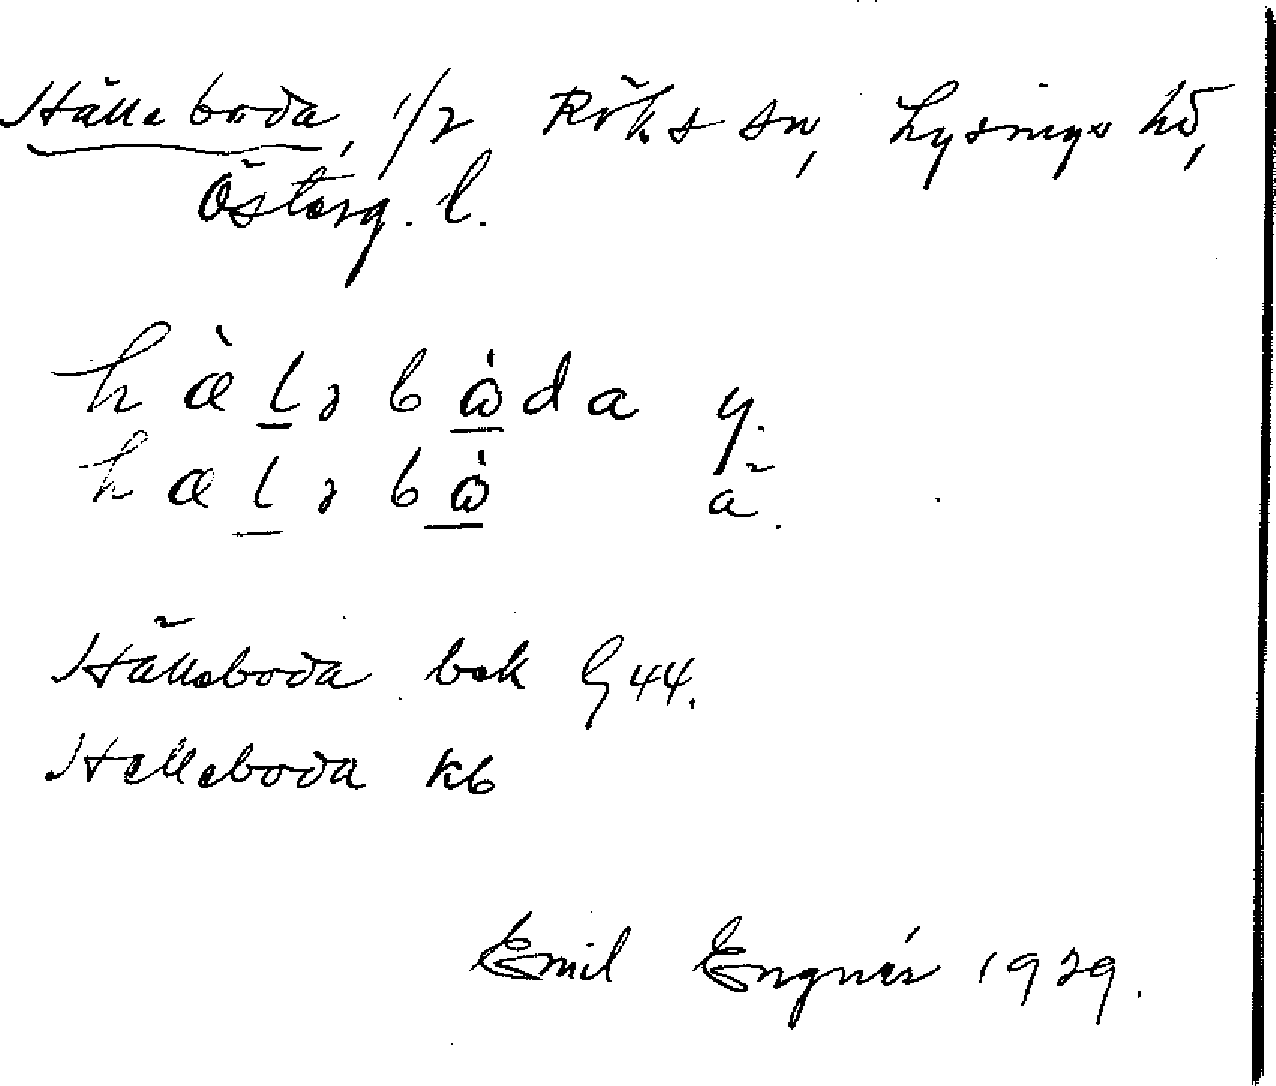 Hälleboda, 1/2 Röks sn, Lysings hd,
Östergl. l.
hæ̀ləbὼda y.
hæləbὼ ä.
Hälleboda bok G 44.
Helleboda kb
Emil Engnér 1929.